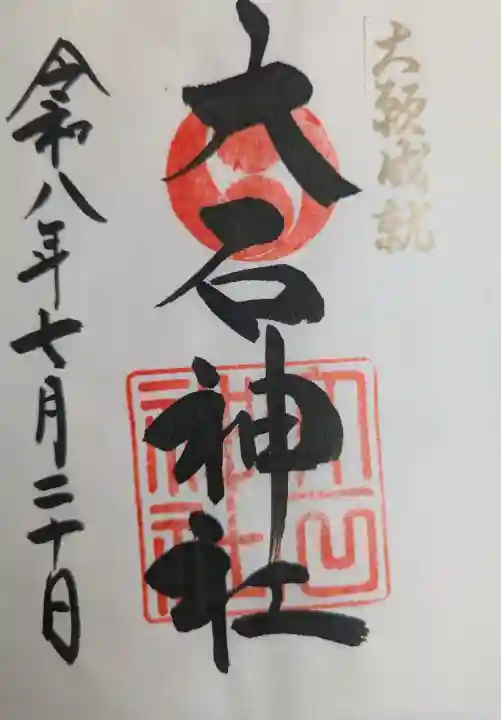 大願成就
大石神社
令和八年七月二十日